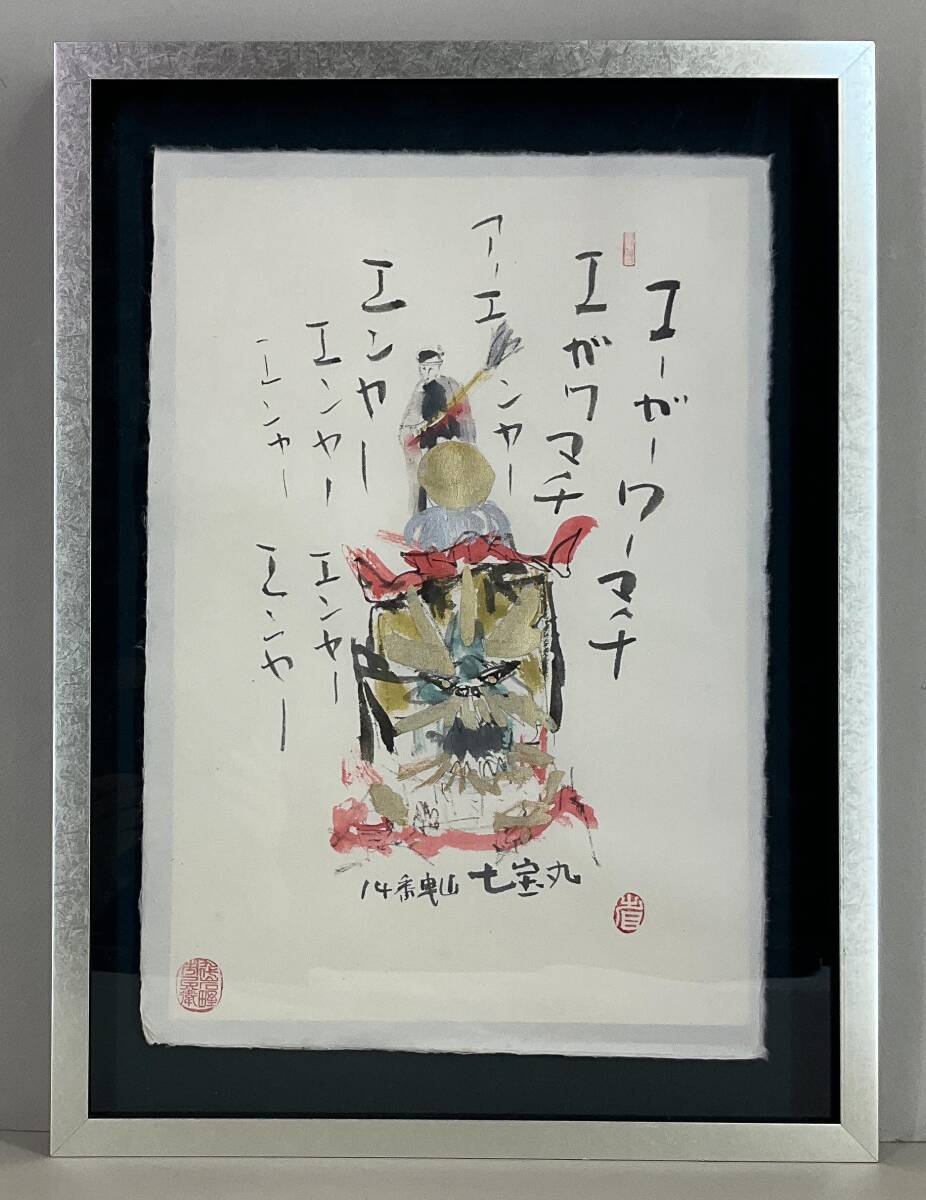 エーガーワーマチ
エガワマチ
アーエンヤー
エンヤー
エンヤー エンヤー
エンヤー エンヤー
14番曳山 七宝丸